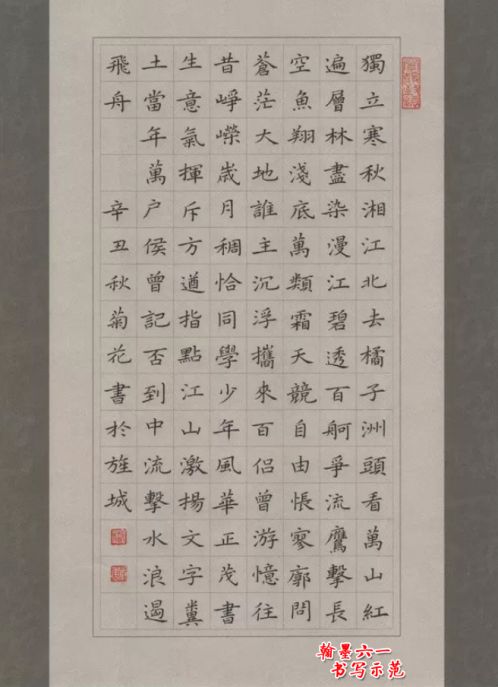 獨立寒秋湘江北去橘子洲頭看萬山紅
遍層林盡染漫江碧透百舸爭流鷹擊長
空魚翔淺底萬類霜天競自由悵寥廓問
蒼茫大地誰主沉浮攜來百侶曾游憶往
昔崢嶸嵗月稠恰同學少年風華正茂書
生意氣揮斥方遒指點江山激揚文字糞
土當年萬户侯曾記否到中流擊水浪遏
飛舟 辛丑秋菊花書於旌城
翰墨六一
书写示范